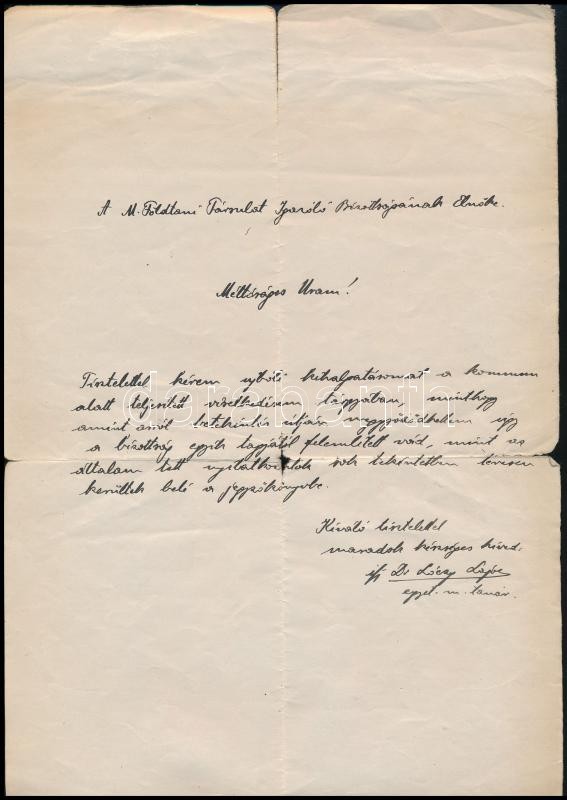 A M. Földtani Társulat Igazoló Bizottságának Elnöke.
Méltóságos Uram!
Tisztelettel kérem ujboli kihalgatásomat a kommun
alatt teljesitett viselkedésem tárgyában, minthogy
amint arról betekintés útján meggyőződhettem úgy
a bizottság egyik tagjától felemlitett vád, mint az
általam tett nyilatkozatok sok tekintetben tévesen
kerültek belé a jegyzőkönyvbe.
Kiváló tisztelettel
maradok készséges híved:
ifj Dr Lóczy Lajos
egyet. m. tanár.
darabanth